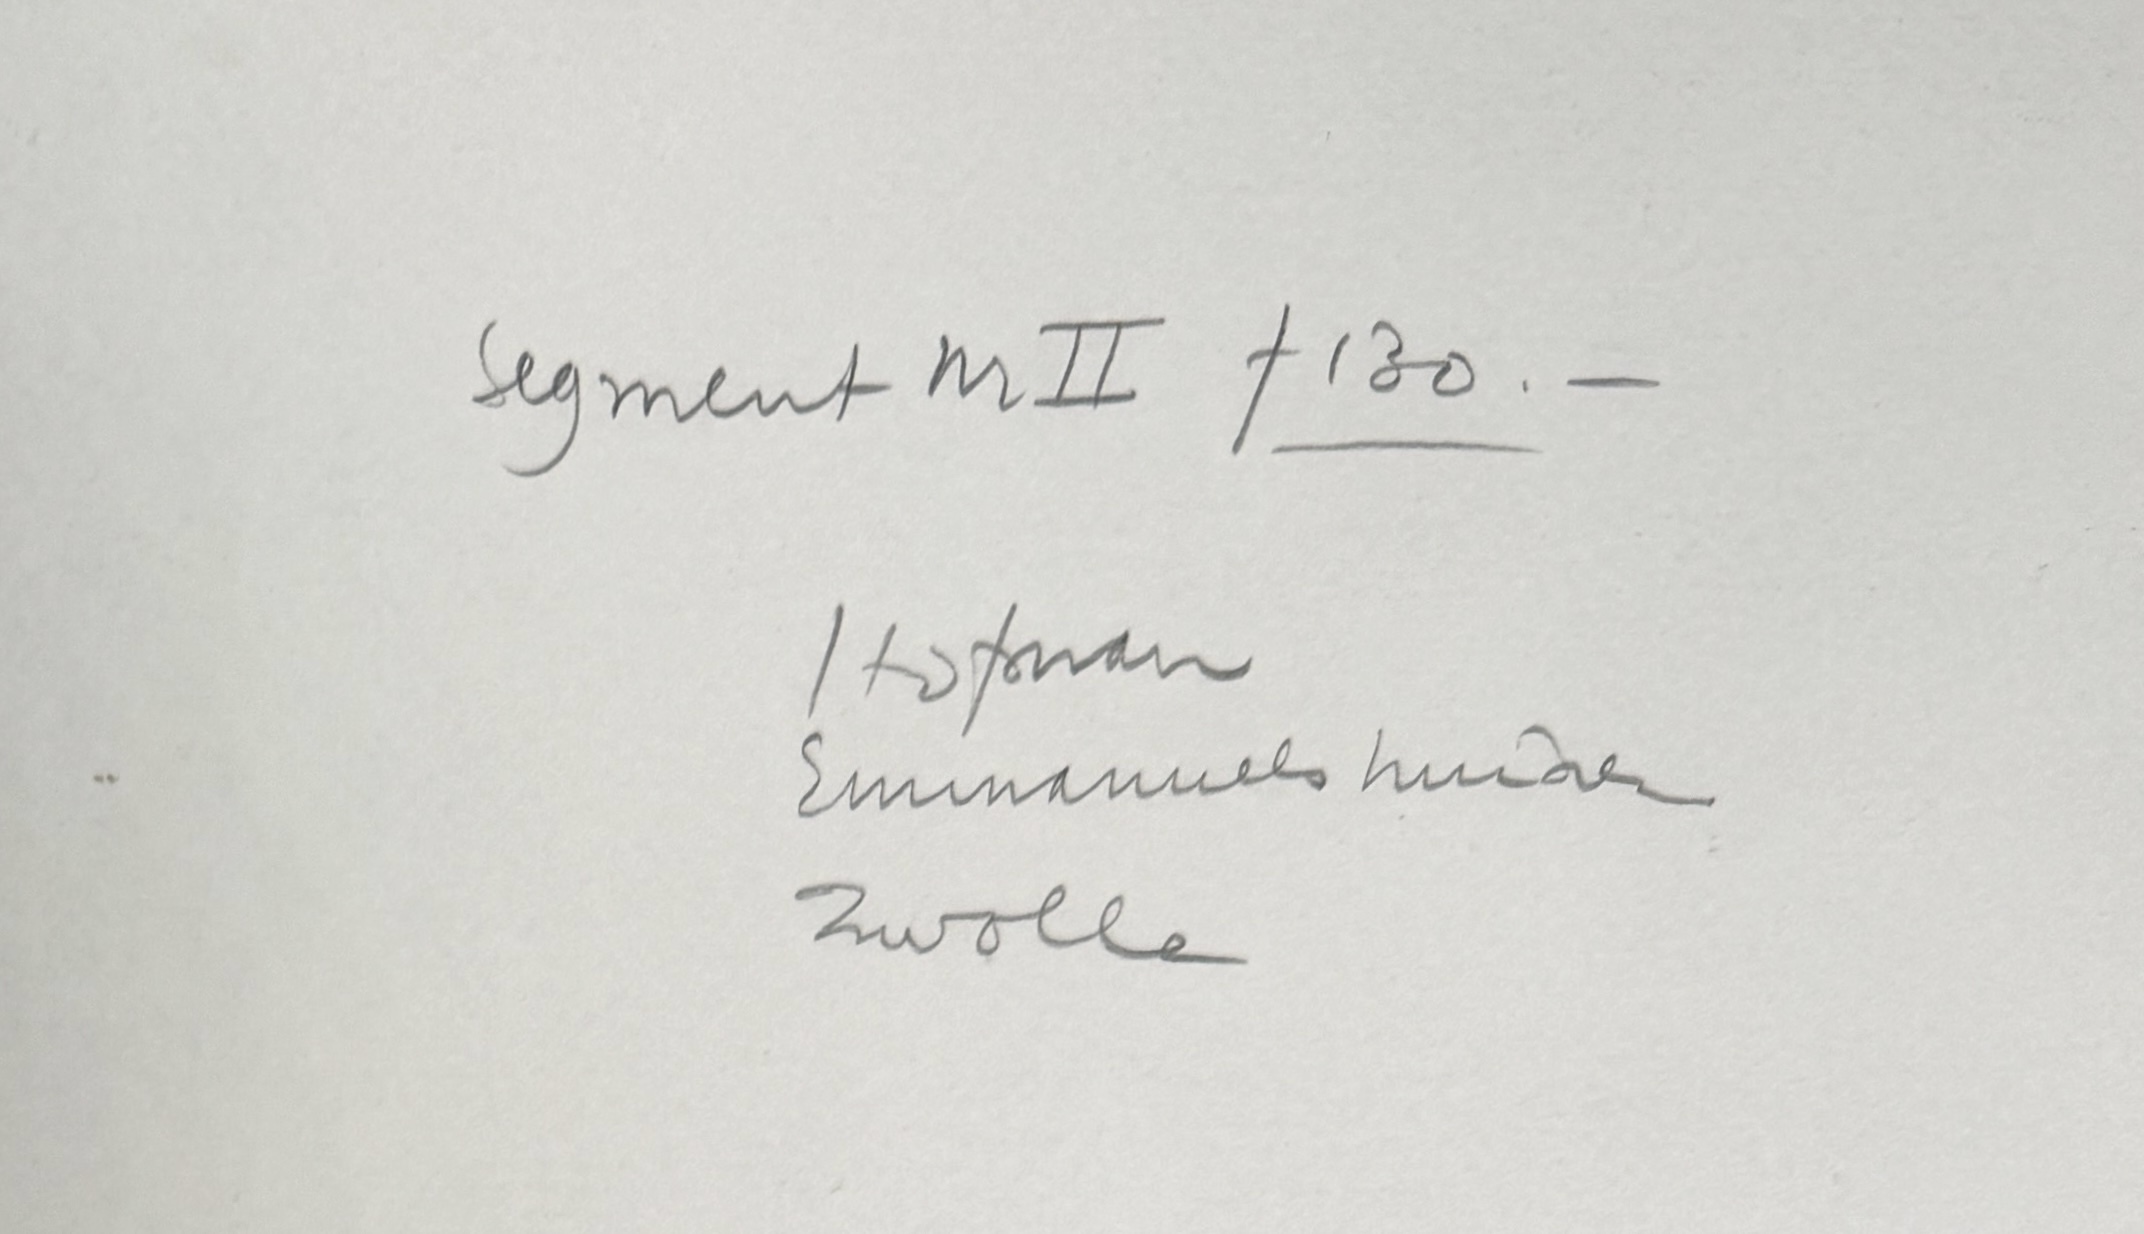 Segment nr II f 130.—
Hofman
Emmanuelshuizen
Zwolle